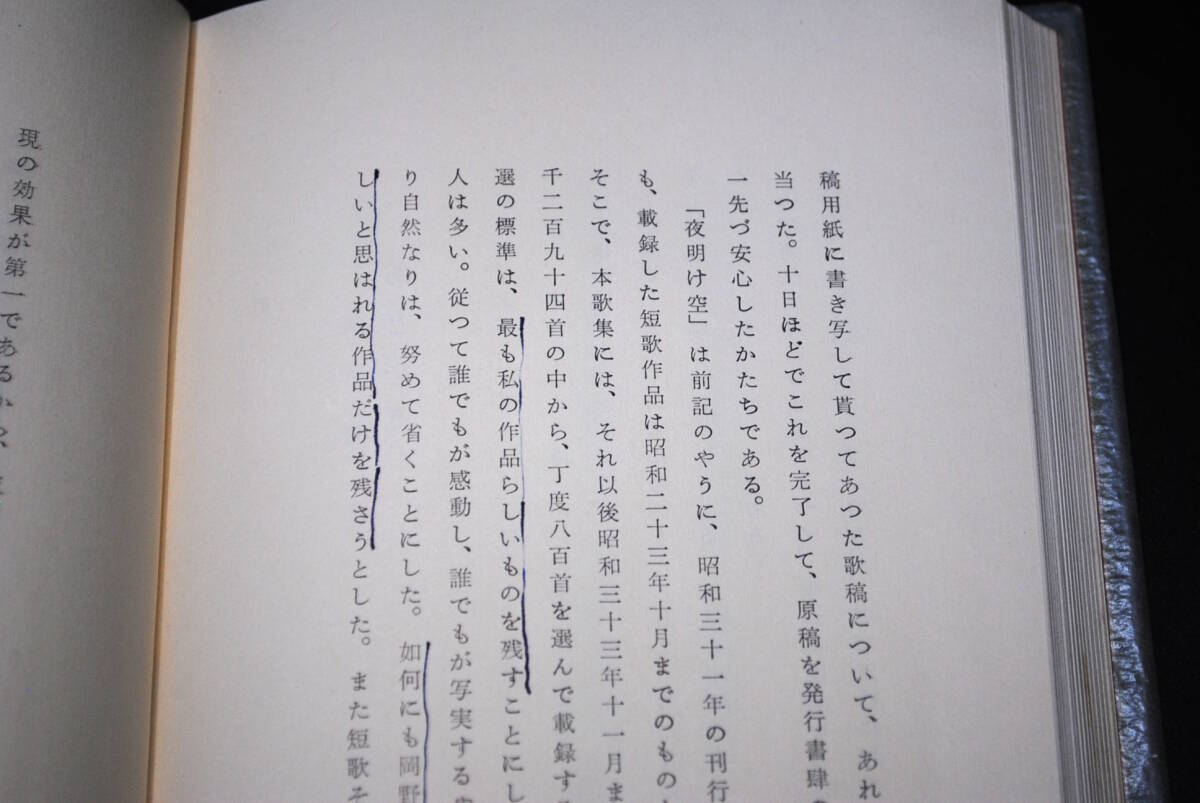 稿用紙に書き写して貰つてあつた歌稿について、あれ
当つた。十日ほどでこれを完了して、原稿を発行書肆の
一先づ安心したかたちである。
「夜明け空」は前記のやうに、昭和三十一年の刊行
も、載録した短歌作品は昭和二十三年十月までのもの
そこで、本歌集には、それ以後昭和三十三年十一月ま
千二百九十四首の中から、丁度八百首を選んで載録す
選の標準は、最も私の作品らしいものを残すことにし
人は多い。従つて誰でもが感動し、誰でもが写実する
り自然なりは、努めて省くことにした。如何にも岡野
しいと思はれる作品だけを残さうとした。また短歌そ
現の効果が第一であるか